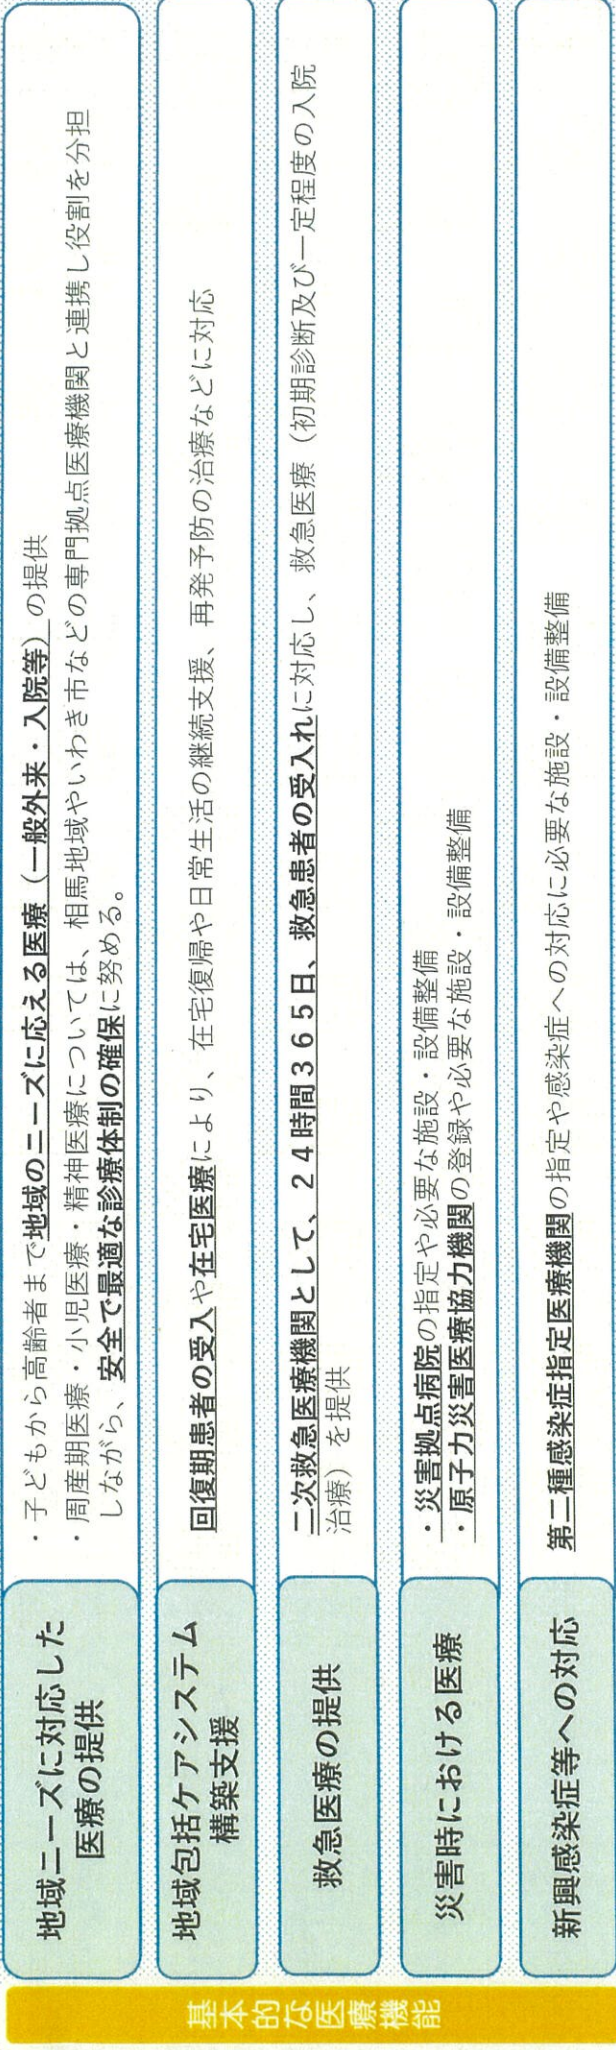 基本的な医療機能
地域ニーズに対応した
医療の提供
・子どもから高齢者まで地域のニーズに応える医療（一般外来・入院等）の提供
・周産期医療・小児医療・精神医療については、相馬地域やいわき市などの専門拠点医療機関と連携し役割を分担
しながら、安全で最適な診療体制の確保に努める。
地域包括ケアシステム
構築支援
回復期患者の受入や在宅医療により、在宅復帰や日常生活の継続支援、再発予防の治療などに対応
救急医療の提供
二次救急医療機関として、２４時間３６５日、救急患者の受入れに対応し、救急医療（初期診断及び一定程度の入院
治療）を提供
災害時における医療
・災害拠点病院の指定や必要な施設・設備整備
・原子力災害医療協力機関の登録や必要な施設・設備整備
新興感染症等への対応
第二種感染症指定医療機関の指定や感染症への対応に必要な施設・設備整備